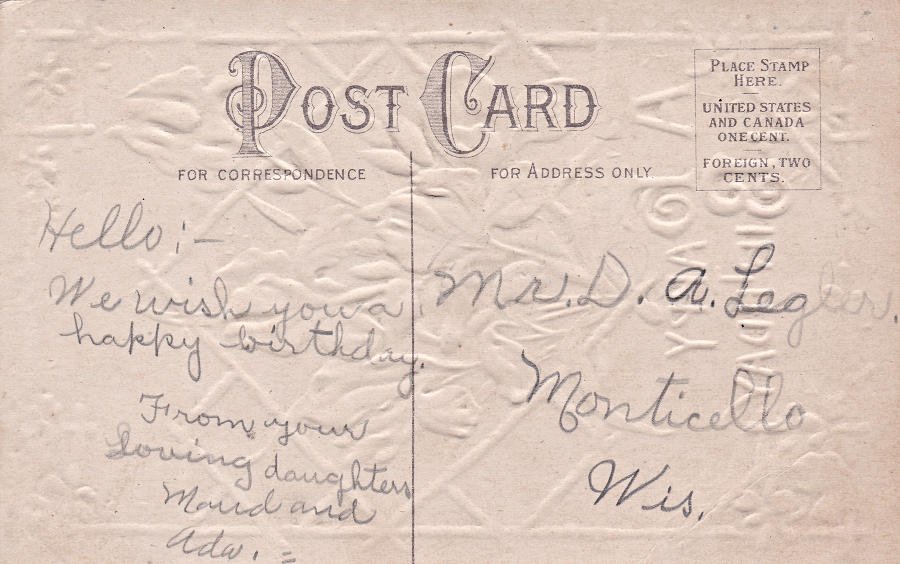 POST CARD
FOR CORRESPONDENCE
FOR ADDRESS ONLY.
PLACE STAMP
HERE.
UNITED STATES
AND CANADA
ONE CENT.
FOREIGN, TWO
CENTS.
Hello:-
We wish you a
happy birthday.
From your
Loving daughters
Maud and
Ada.
Mr. D. A. Legler.
Monticello
Wis.